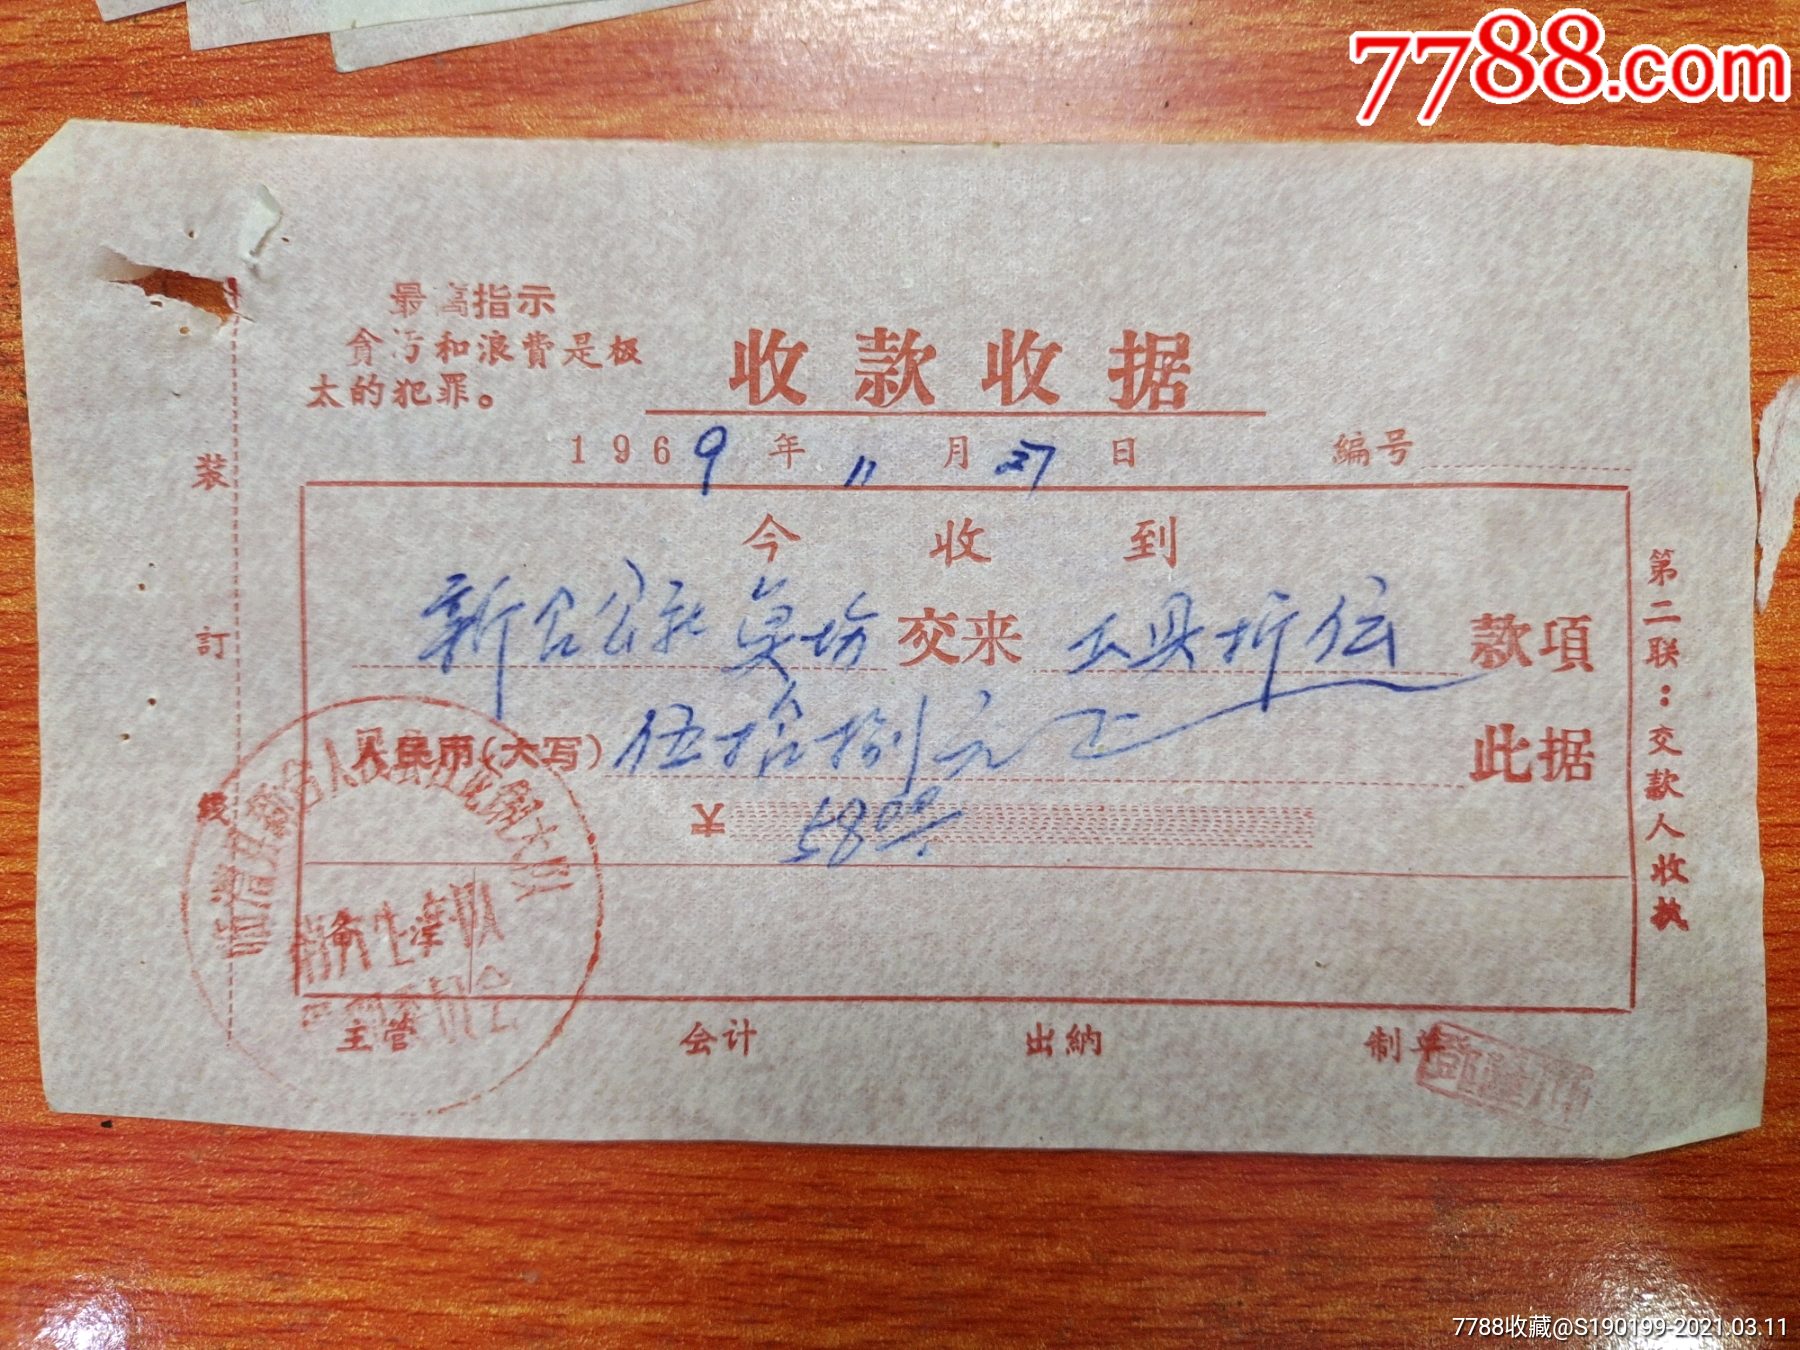 7788.com
最高指示
贪污和浪费是极
太的犯罪。
收款收据
1969年11月27日 编号
今收到
新合公社 交来 工具折伍 款項
人民币(大写) 伍拾捌元正 此据
¥ 58.00
主管 会计 出纳 制单
装訂线
第二联:交款人收执
7788收藏@S190199-2021.03.11